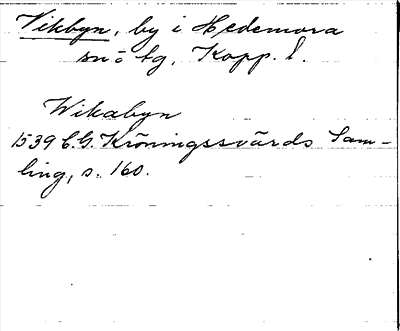 Vikbyn, by i Hedemora
sn o tg, Kopp. l.
Wikabyn
1539 C.G. Kröningssvärds Sam-
ling, s. 160.